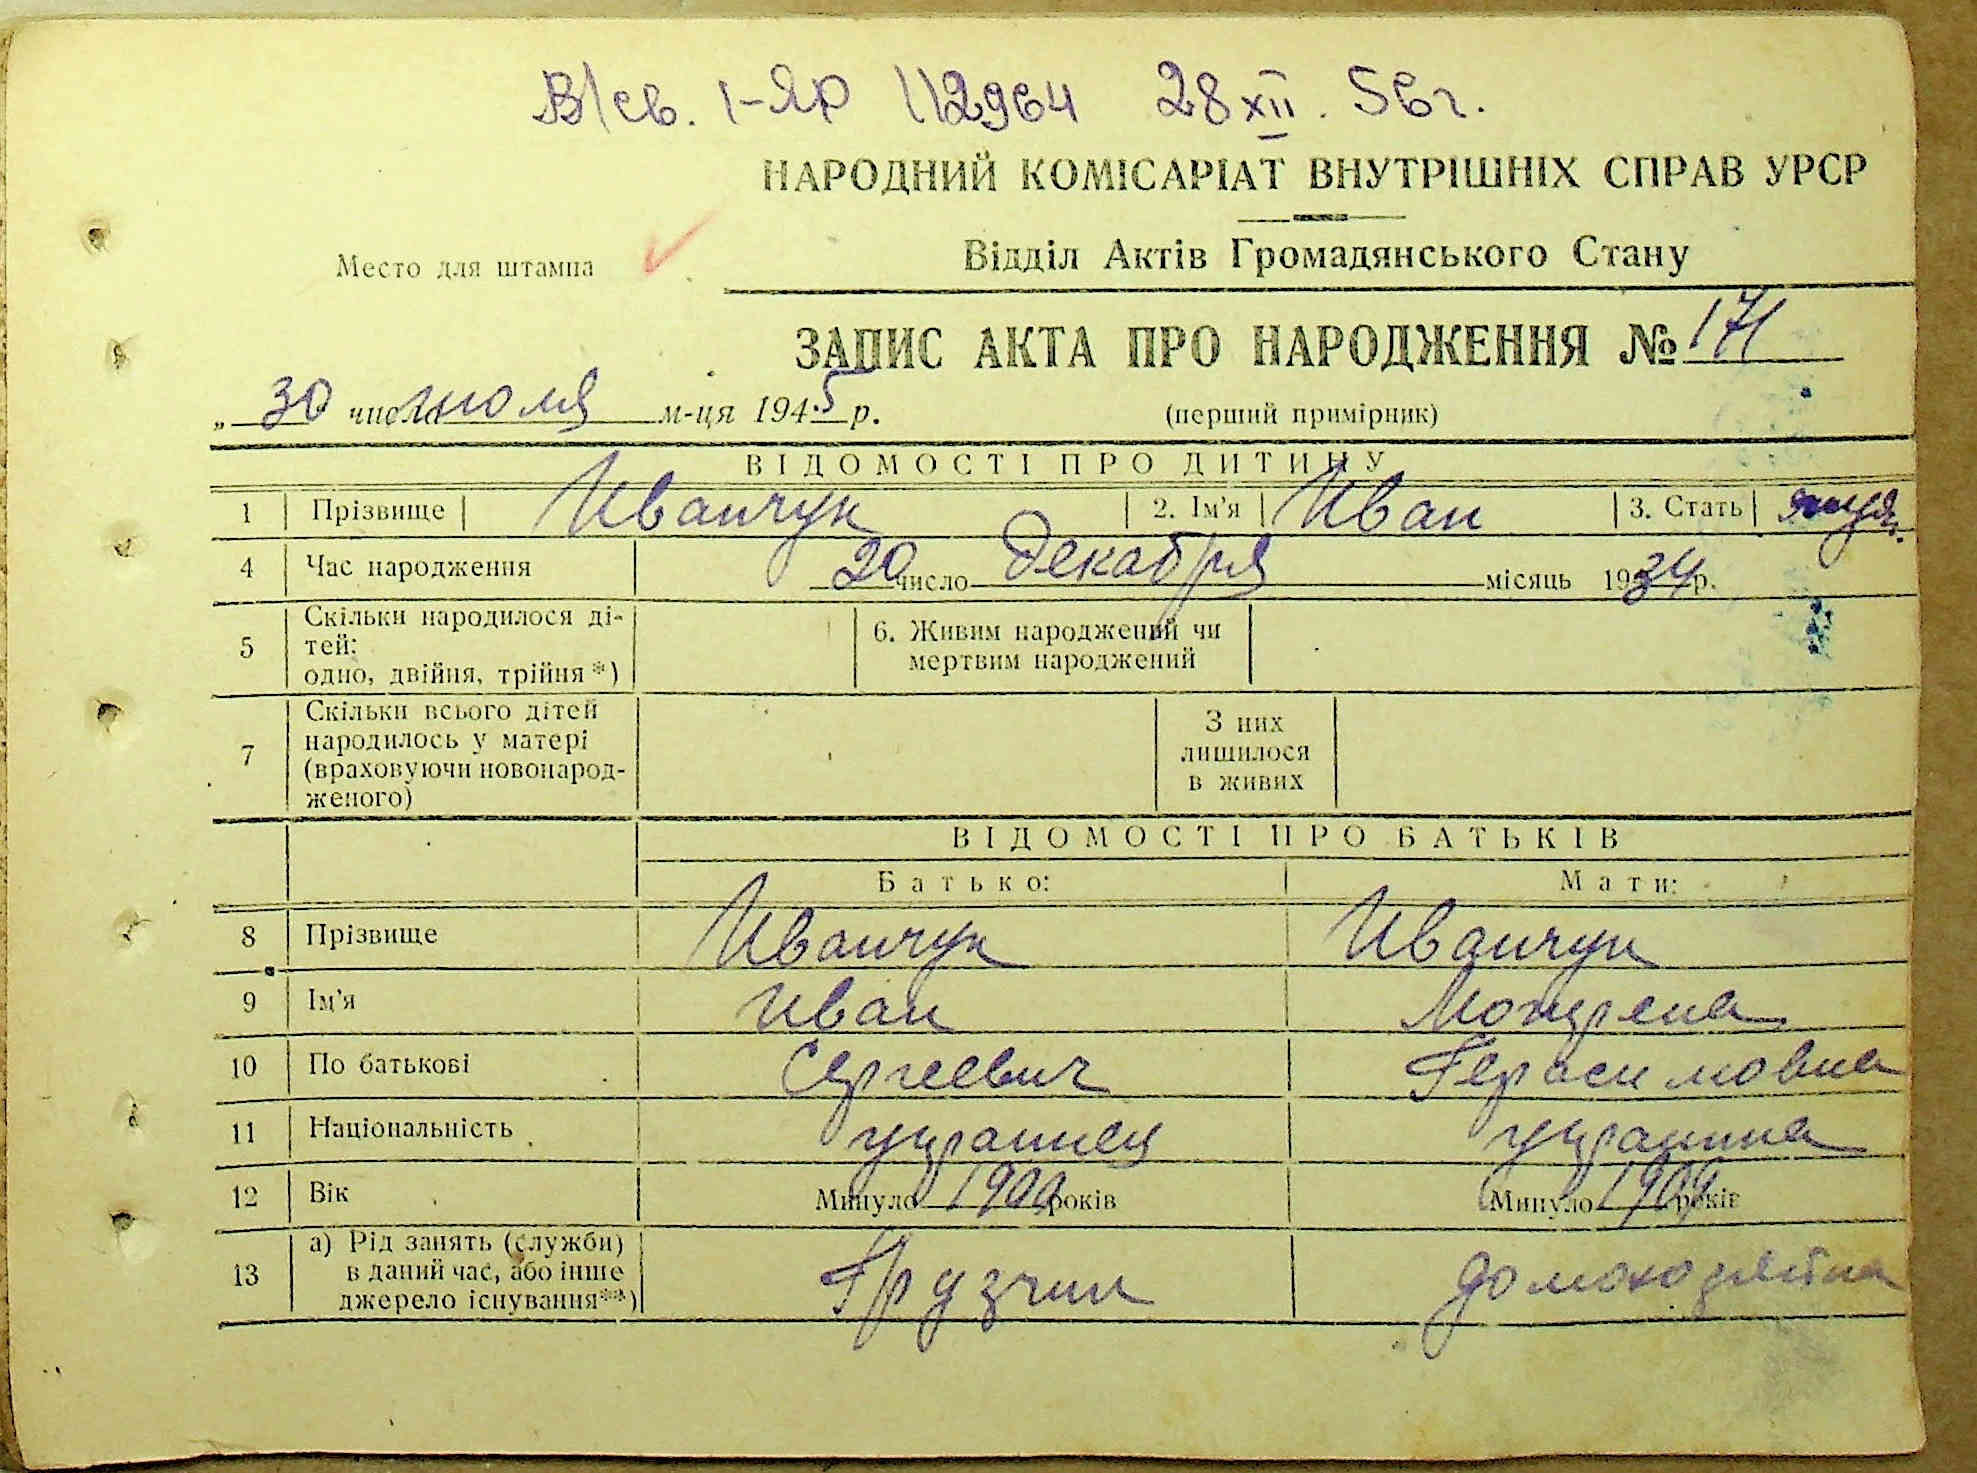 В/св. I-ЯР 112964 28 XII. 56 г.
НАРОДНИЙ КОМІСАРІАТ ВНУТРІШНІХ СПРАВ УРСР
Место для штампа
Відділ Актів Громадянського Стану
ЗАПИС АКТА ПРО НАРОДЖЕННЯ № 171
„ 30 числа июля м-ця 1945 р. (перший примірник)
ВІДОМОСТІ ПРО ДИТИНУ
1 Прізвище Иванчук 2. Ім'я Иван 3. Стать
4 Час народження 20 число декабря місяць 1934 р.
5 Скільки народилося ді-
тей:
одно, двійня, трійня *)
6. Живим народжений чи
мертвим народжений
7 Скільки всього дітей
народилось у матері
(враховуючи новонарод-
женого)
З них
лишилося
в живих
ВІДОМОСТІ ПРО БАТЬКІВ
Батько: Мати:
8 Прізвище Иванчук Иванчук
9 Ім'я Иван Мотрена
10 По батькові Сергеевич Герасимовна
11 Національність украинец украинка
12 Вік Минуло 1900 років Минуло 1909 років
13 а) Рід занять (служби)
в даний час, або інше
джерело існування**)
Грузчик домохозяйка